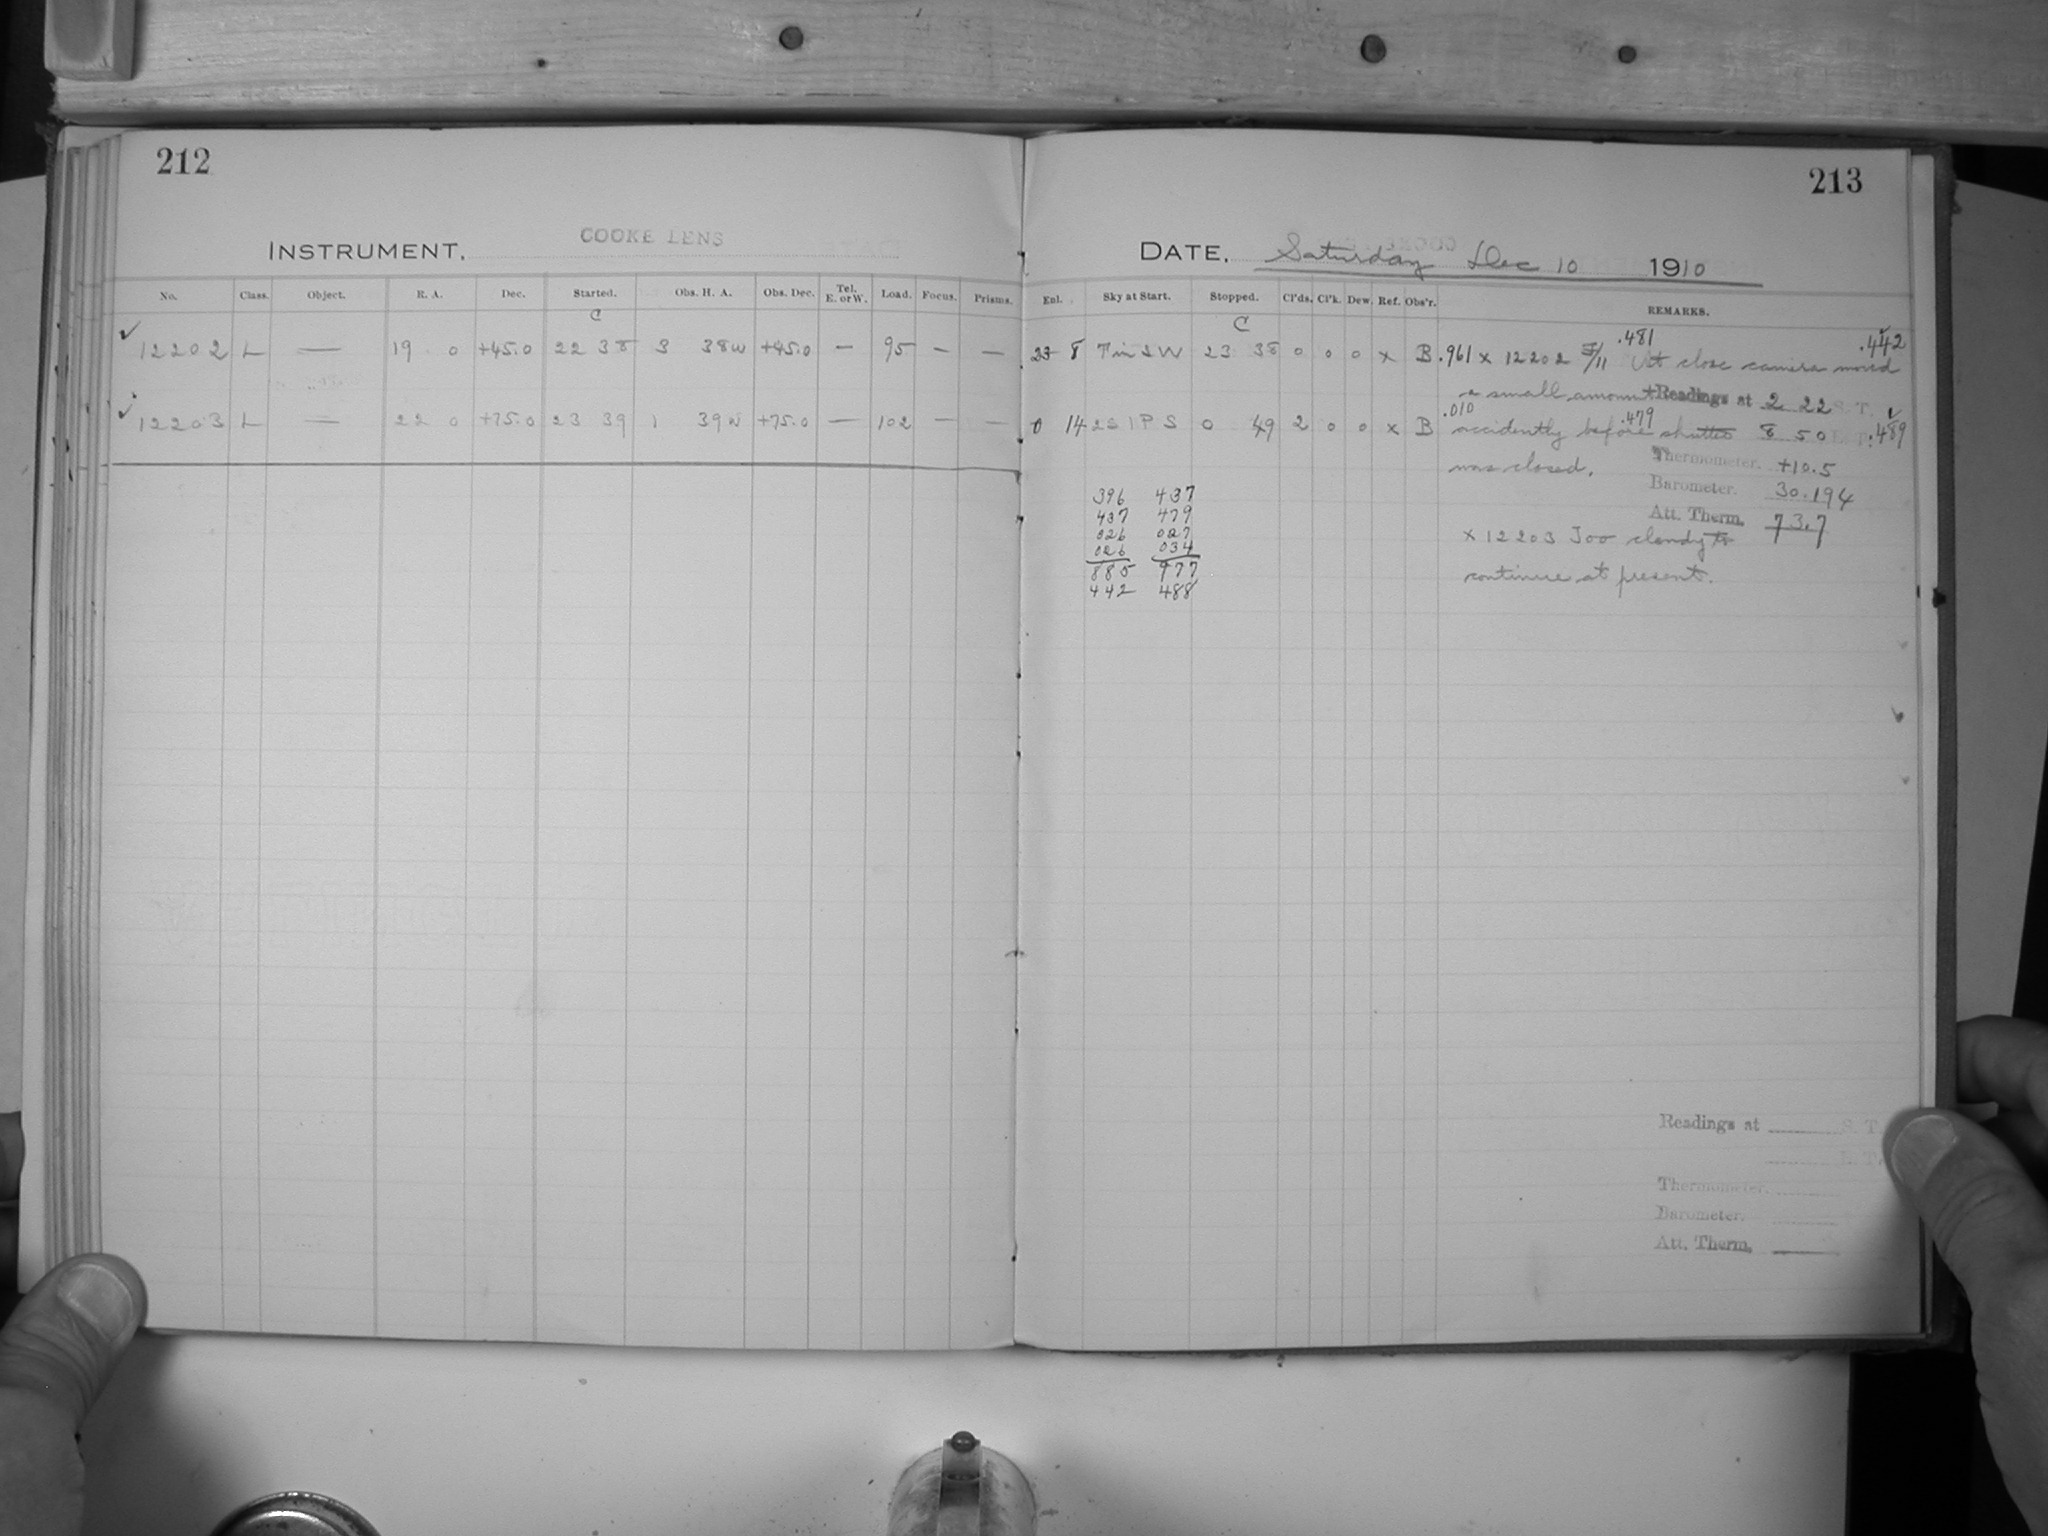 212
INSTRUMENT. COOKE LENS
No. Class. Object. R. A. Dec. Started. Obs. H. A. Obs. Dec. Tel. E. or W. Load. Focus. Prisms.
C
✓ 12202 L — 19 0 +45.0 22 38 3 38W +45.0 — 95 — —
✓ 12203 L — 22 0 +75.0 23 39 1 39W +75.0 — 102 — —
213
DATE. Saturday Dec 10 1910
Enl. Sky at Start. Stopped. Cl'ds. Cl'k. Dew. Ref. Obs'r. REMARKS.
C .481 .442
23 8 23 38 0 0 0 x B .961 x 12202 At close camera moved
a small amount Readings at 2 22 S. T.
.010 .479
0 14 0 49 2 0 0 x B accidently before shutter 8 50 E. T. .489
was closed. Thermometer. +10.5
Barometer. 30.194
Att. Therm. 73.7
x 12203 Too cloudy to
continue at present.
396 437
437 479
026 027
026 034
885 977
442 488
Readings at S. T.
E. T.
Thermometer.
Barometer.
Att. Therm.